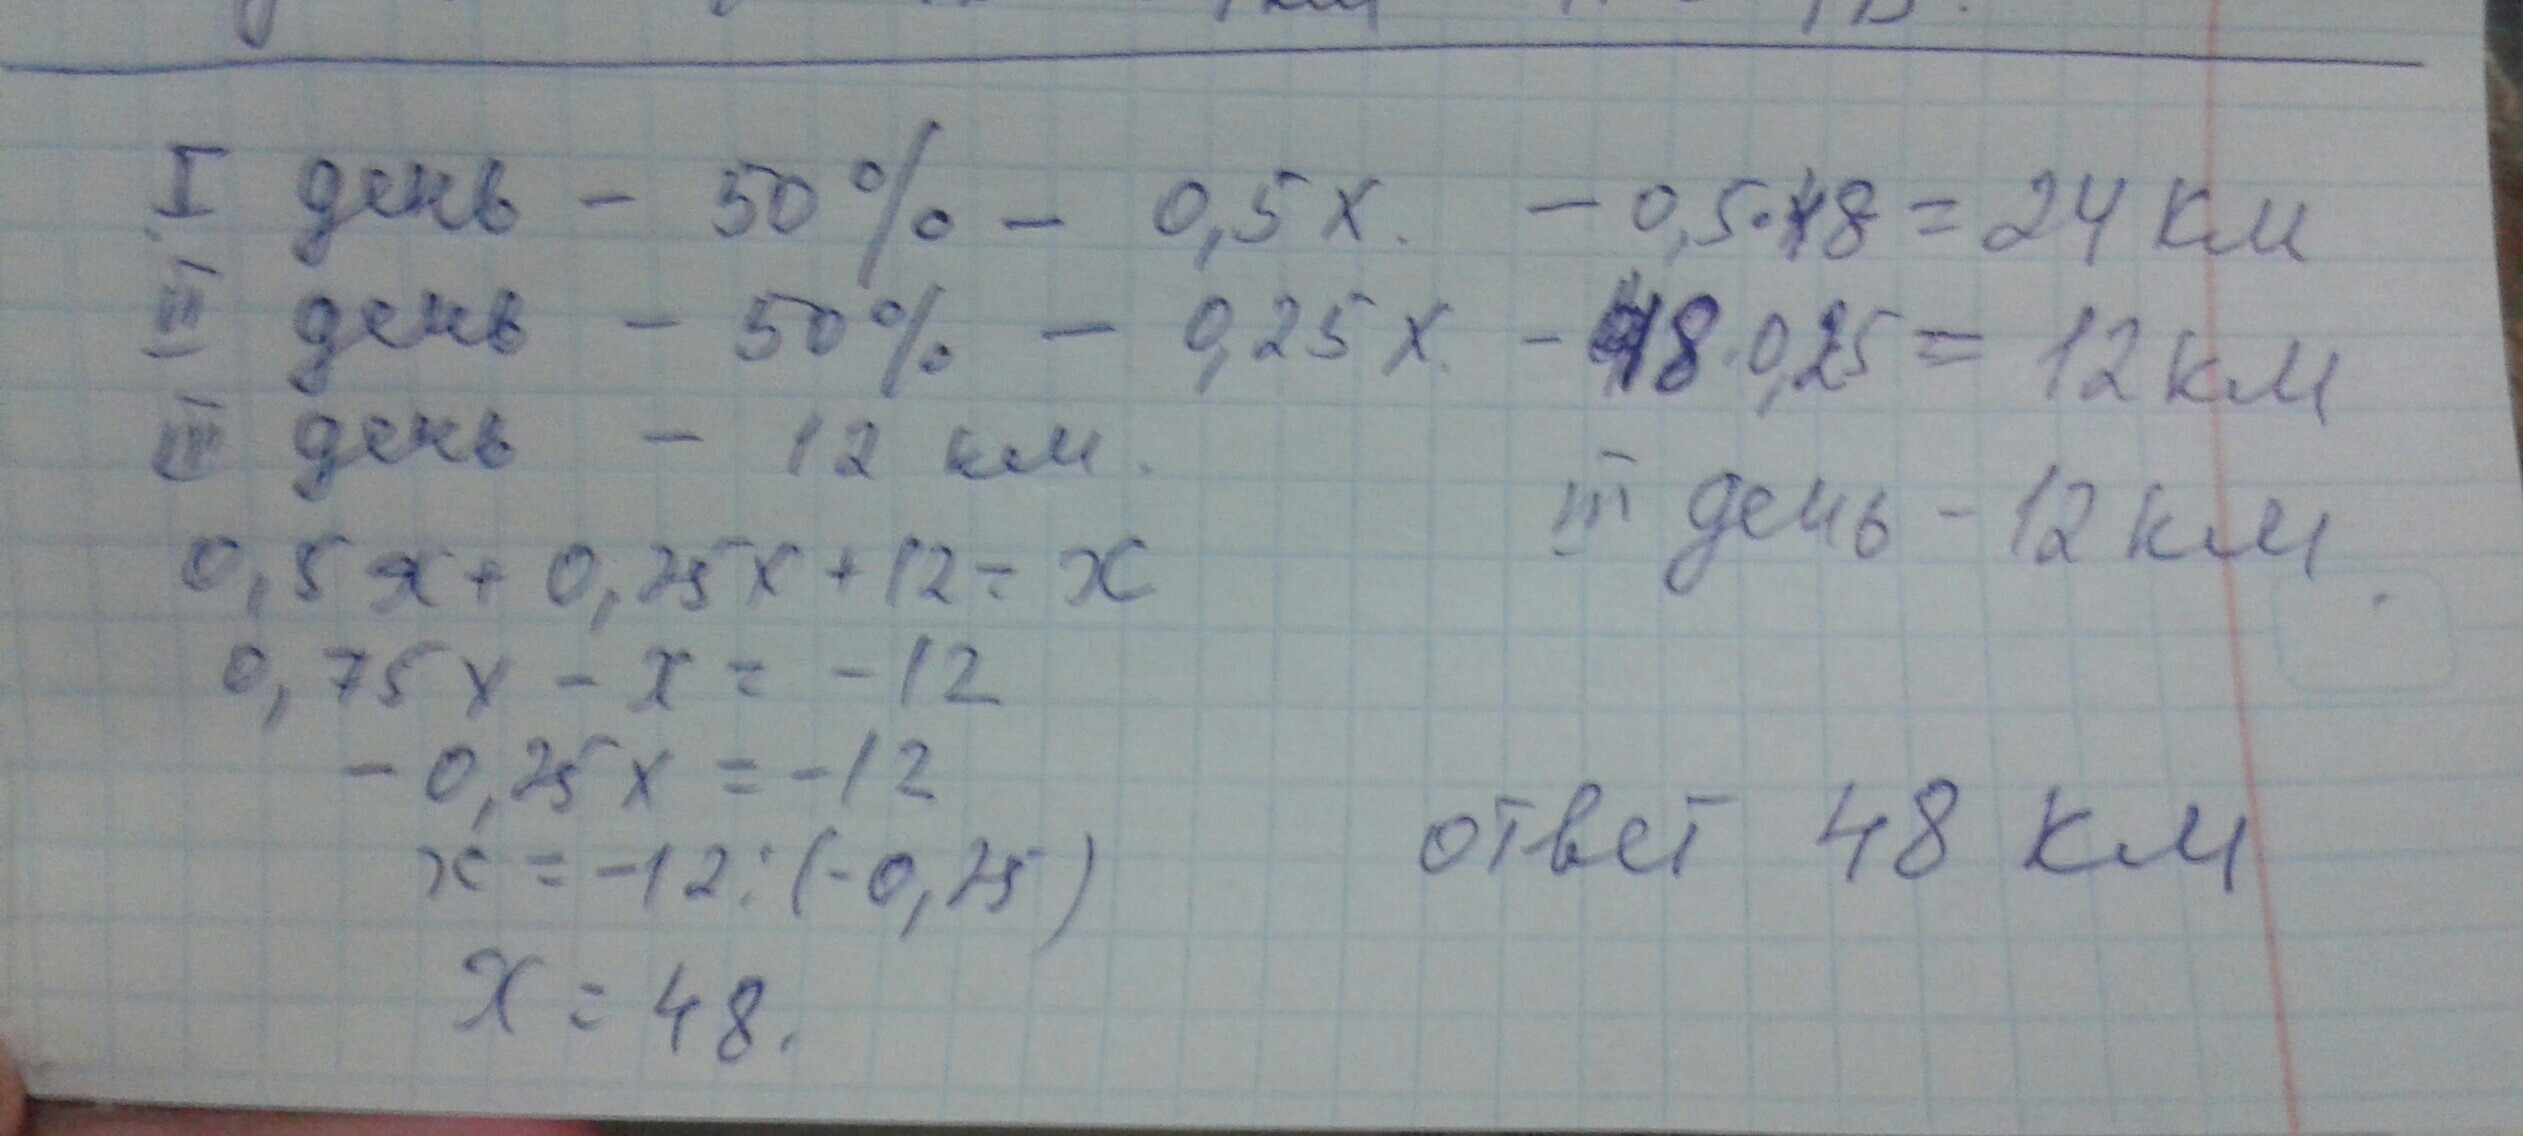 I день - 50% - 0,5x. - 0,5·48 = 24 км
III день - 50% - 0,25x. - 48·0,25 = 12 км
III день - 12 км.
III день - 12 км.
0,5x + 0,25x + 12 = x
0,75x - x = -12
-0,25x = -12
ответ 48 км
x = -12:(-0,25)
x = 48.